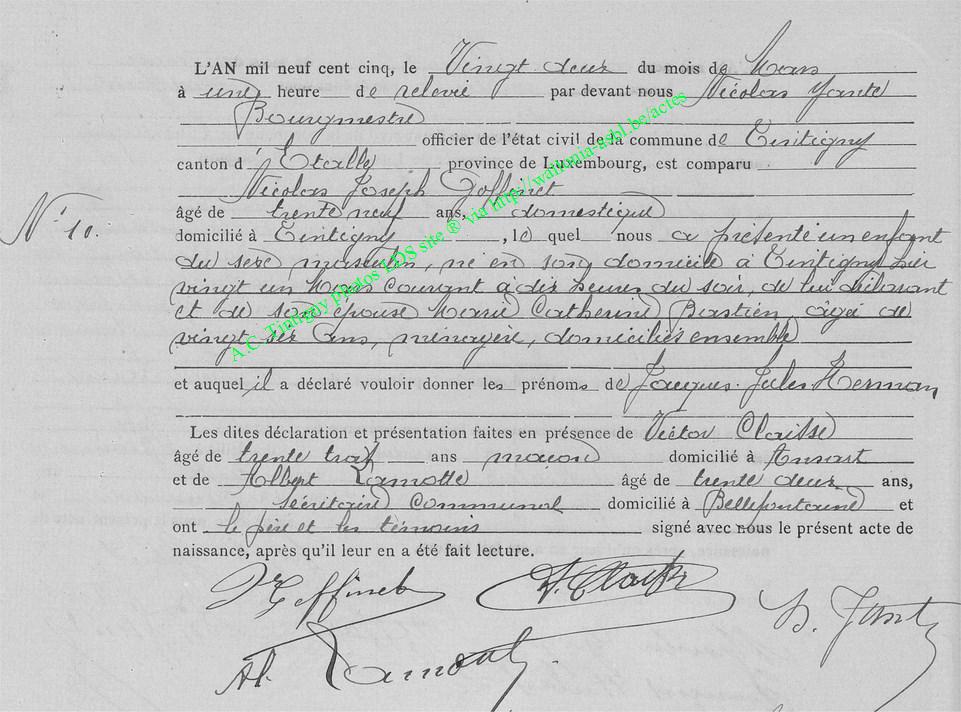 L'AN mil neuf cent cinq, le Vingt deux du mois de Mars
à une heure de relevée par devant nous Nicolas Jante
Bourgmestre
officier de l'état civil de la commune de Tintigny
canton d'Etalle province de Luxembourg, est comparu
Nicolas Joseph Goffinet
âgé de trente neuf ans, domestique
N° 10.
domicilié à Tintigny, le quel nous a présenté un enfant
du sexe masculin, né en son domicile à Tintigny hier
vingt un Mars courant à dix heures du soir, de lui déclarant
et de son épouse Marie Catherine Bastien, âgée de
vingt six ans, ménagère, domiciliés ensemble
et auquel il a déclaré vouloir donner les prénoms de Jacques Jules Herman
Les dites déclaration et présentation faites en présence de Victor Claisse
âgé de trente trois ans maçon domicilié à Ansart
et de Albert Lamotte âgé de trente deux ans,
secrétaire communal domicilié à Bellefontaine et
ont le père et les témoins signé avec nous le présent acte de
naissance, après qu'il leur en a été fait lecture.
Goffinet V. Claisse
Al. Lamotte
A.C. Tintigny photos LDS site ® via http://wallonia-asbl.be/actes